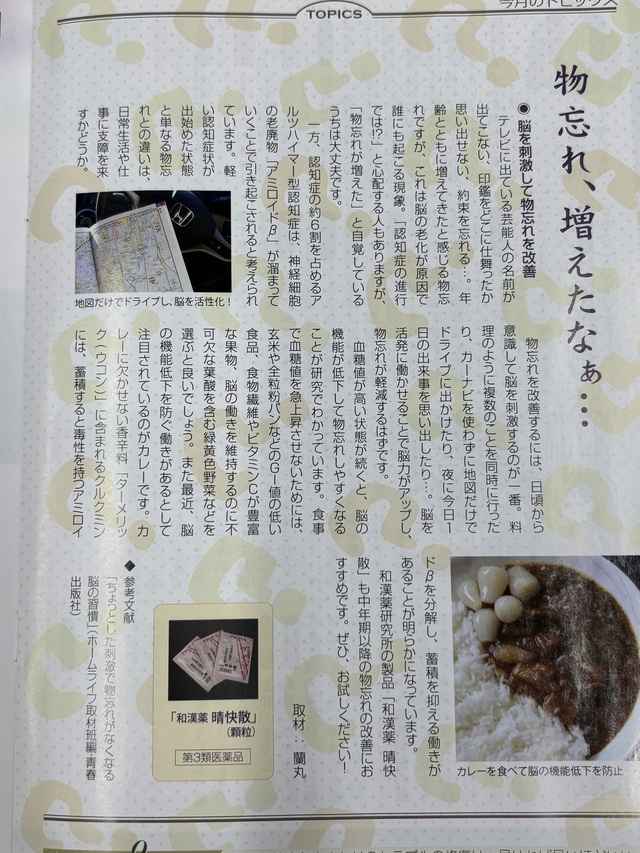 今月のトピックス
TOPICS
物忘れ、増えたなぁ…
●脳を刺激して物忘れを改善
テレビに出ている芸能人の名前が
出てこない、印鑑をどこに仕舞ったか
思い出せない、約束を忘れる…。年
齢とともに増えてきたと感じる物忘
れですが、これは脳の老化が原因で
誰にも起こる現象。「認知症の進行
では!?」と心配する人もありますが、
「物忘れが増えた」と自覚している
うちは大丈夫です。
一方、認知症の約6割を占めるア
ルツハイマー型認知症は、神経細胞
の老廃物「アミロイドβ」が溜まって
いくことで引き起こされると考えられ
ています。軽
い認知症状が
出始めた状態
と単なる物忘
れとの違いは、
日常生活や仕
事に支障を来
すかどうか。
地図だけでドライブし、脳を活性化！
物忘れを改善するには、日頃から
意識して脳を刺激するのが一番。料
理のように複数のことを同時に行った
り、カーナビを使わずに地図だけで
ドライブに出かけたり、夜に今日1
日の出来事を思い出したり…。脳を
活発に働かせることで脳力がアップし、
物忘れが軽減するはずです。
血糖値が高い状態が続くと、脳の
機能が低下して物忘れしやすくなる
ことが研究でわかっています。食事
で血糖値を急上昇させないためには、
玄米や全粒粉パンなどのGI値の低い
食品、食物繊維やビタミンCが豊富
な果物、脳の働きを維持するのに不
可欠な葉酸を含む緑黄色野菜などを
選ぶと良いでしょう。また最近、脳
の機能低下を防ぐ働きがあるとして
注目されているのがカレーです。カ
レーに欠かせない香辛料「ターメリッ
ク（ウコン）」に含まれるクルクミン
には、蓄積すると毒性を持つアミロイ
ドβを分解し、蓄積を抑える働きが
あることが明らかになっています。
和漢薬研究所の製品「和漢薬 晴快
散」も中年期以降の物忘れの改善にお
すすめです。ぜひ、お試しください！
取材：蘭丸
カレーを食べて脳の機能低下を防止
「和漢薬 晴快散」
（顆粒）
第3類医薬品
◆参考文献
「ちょっとした刺激で物忘れがなくなる
脳の習慣」（ホームライフ取材班編・青春
出版社）
9